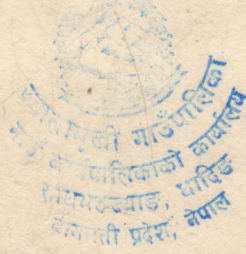 ज्वालामुखी गाउँपालिका
गाउँ कार्यपालिकाको कार्यालय
धादिङ
बागमती प्रदेश, नेपाल